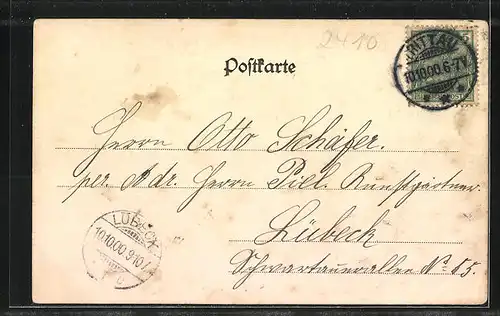 2410
TRITTAU
10.10.00.6-7V.
Postkarte
Herrn Otto Schäfer.
per. Adr. Herrn Piel. Kunstgärtner
Lübeck
Schwartauerallee No 85.
LÜBECK
10.10.00.9-10V.